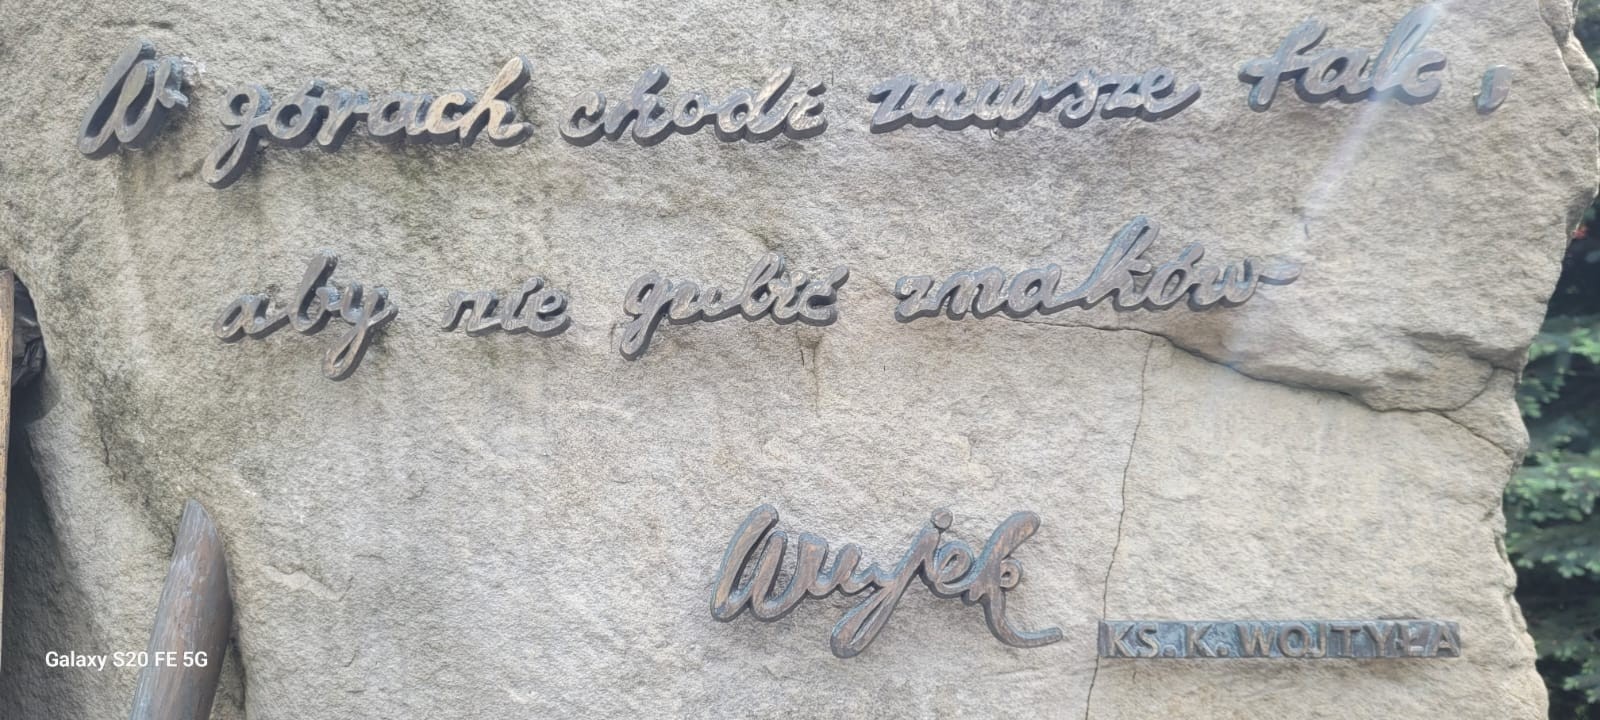 W górach chodź zawsze tak,
aby nie gubić znaków
Wujek
KS. K. WOJTYŁA
Galaxy S20 FE 5G